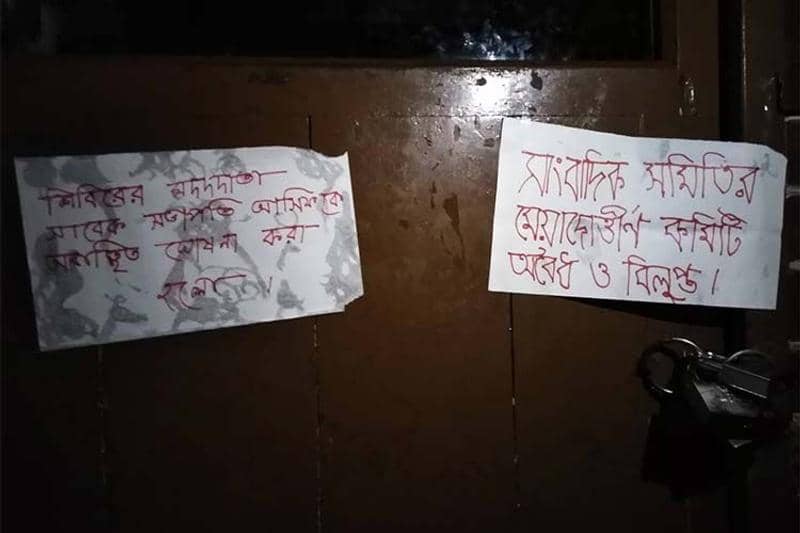 শিবিরের মদদদাতা
সাবেক সভাপতি আসিফকে
অবাঞ্ছিত ঘোষনা করা
হলো ।
সাংবাদিক সমিতির
মেয়াদোত্তীর্ণ কমিটি
অবৈধ ও বিলুপ্ত ।